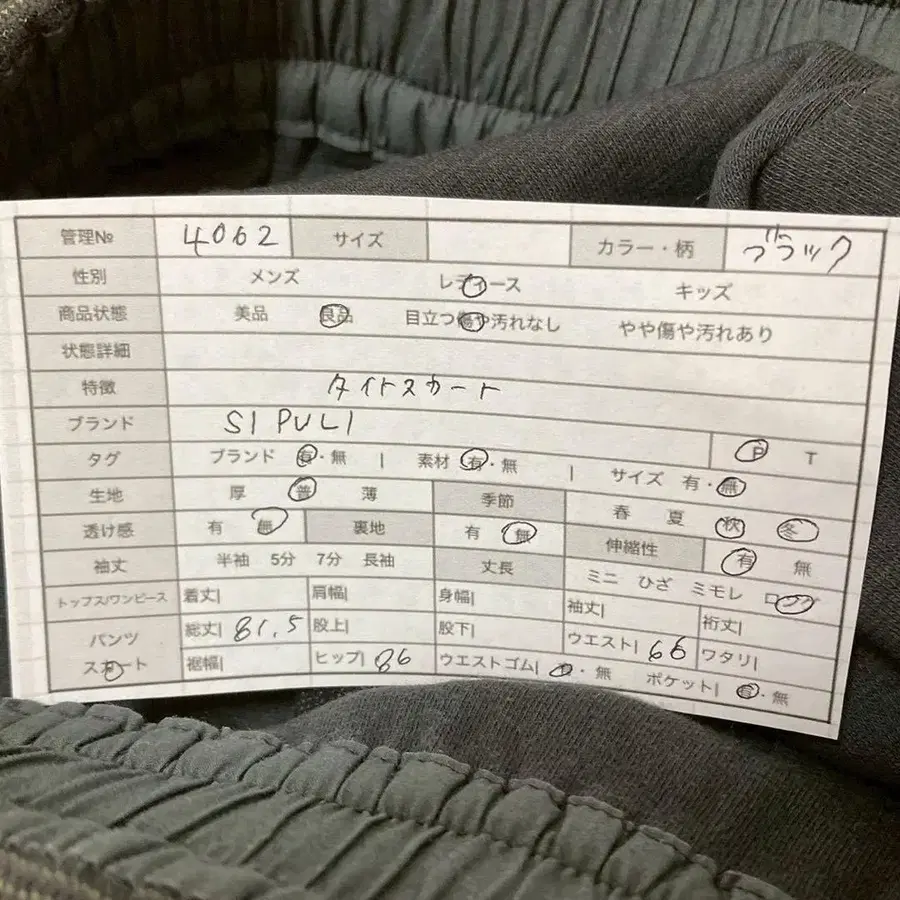 管理№ 4062 サイズ カラー・柄 ブラック
性別 メンズ レディース キッズ
商品状態 美品 良品 目立つ傷や汚れなし やや傷や汚れあり
状態詳細
特徴 タイトスカート
ブランド SIPULI P T
タグ ブランド 有・無 | 素材 有・無 | サイズ 有・無
生地 厚 普 薄 季節 春 夏 秋 冬
透け感 有 無 裏地 有 無 伸縮性 有 無
袖丈 半袖 5分 7分 長袖 丈長 ミニ ひざ ミモレ ロング
トップス/ワンピース 着丈| 肩幅| 身幅| 袖丈| 裄丈|
パンツ 総丈| 81.5 股上| 股下| ウエスト| 66 ワタリ|
スカート 裾幅| ヒップ| 86 ウエストゴム| 有・無 ポケット| 有・無